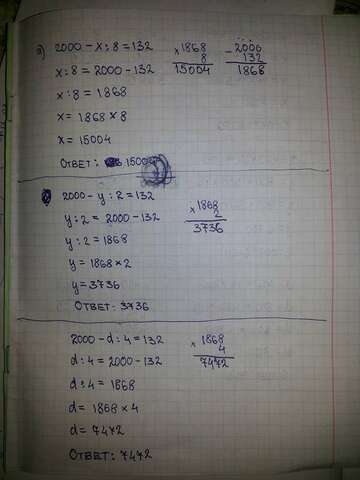 а) 2000 - x : 8 = 132
x : 8 = 2000 - 132
x : 8 = 1868
x = 1868 × 8
x = 15004
ОТВЕТ: 1500
× 1868
8
15004
- 2000
132
1868
2000 - y : 2 = 132
y : 2 = 2000 - 132
y : 2 = 1868
y = 1868 × 2
y = 3736
ОТВЕТ: 3736
× 1868
2
3736
2000 - d : 4 = 132
d : 4 = 2000 - 132
d : 4 = 1868
d = 1868 × 4
d = 7472
ОТВЕТ: 7472
× 1868
4
7472